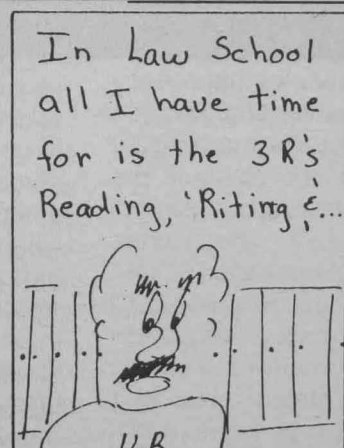 In Law School
all I have time
for is the 3 R's
Reading, 'Riting &...
U.B.